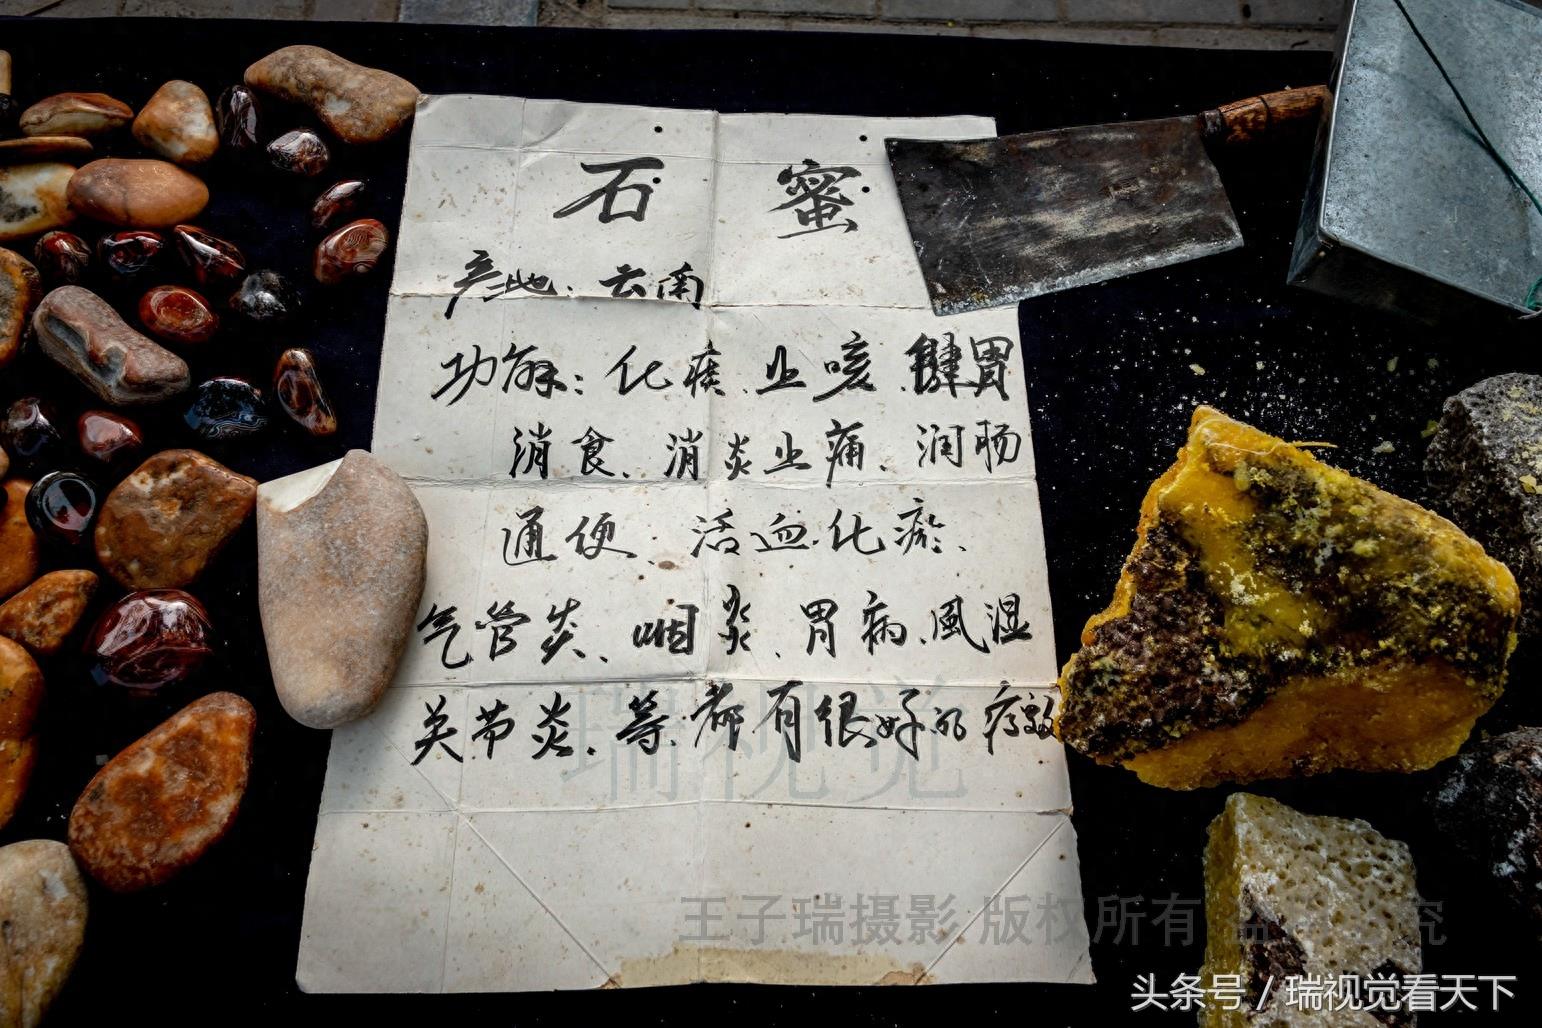 石蜜
产地：云南
功能：化痰、止咳、健胃
消食、消炎止痛、润肠
通便、活血化瘀、
气管炎、咽炎、胃病、風湿
关节炎、等、都有很好的疗效
瑞视觉
王子瑞摄影 版权所有
头条号 / 瑞视觉看天下